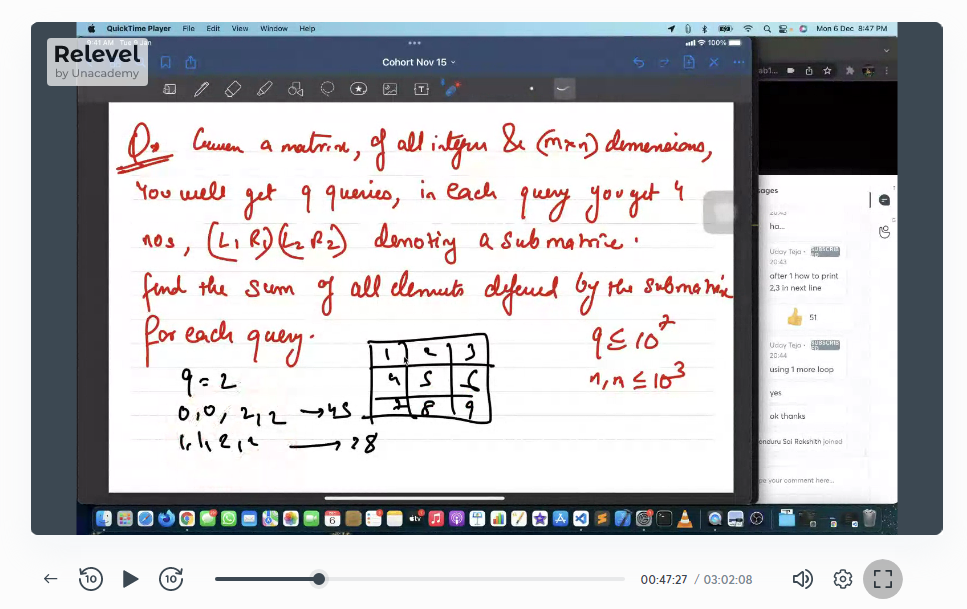 QuickTime Player File Edit View Window Help
Mon 6 Dec 8:47 PM
9:41 AM Tue 9 Jan
100%
Relevel
by Unacademy
Cohort Nov 15
Q. Given a matrix, of all integers & (m×n) dimensions,
You will get q queries, in each query you get 4
nos, (L1 R1)(L2 R2) denoting a submatrix.
find the sum of all elements defined by the submatrix
for each query.
q = 2
0,0, 2,2 → 45
1,1, 2,2 → 28
1 2 3
4 5 6
7 8 9
q ≤ 10
n, n ≤ 10³
sages
20:43
ha...
Uday Teja · SUBSCRIBED
20:43
after 1 how to print
2,3 in next line
51
Uday Teja · SUBSCRIBED
20:44
using 1 more loop
yes
ok thanks
enduru Sai Rakshith joined
pe your comment here...
10 10 00:47:27 / 03:02:08